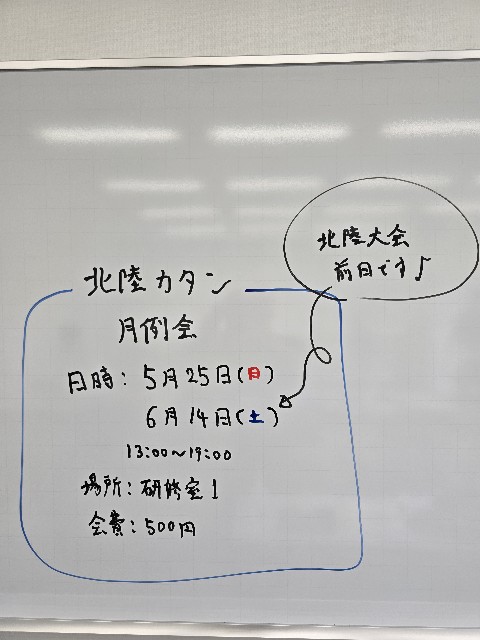 北陸大会
前日です♪
北陸カタン
月例会
日時：5月25日(日)
6月14日(土)
13:00〜19:00
場所：研修室1
会費：500円